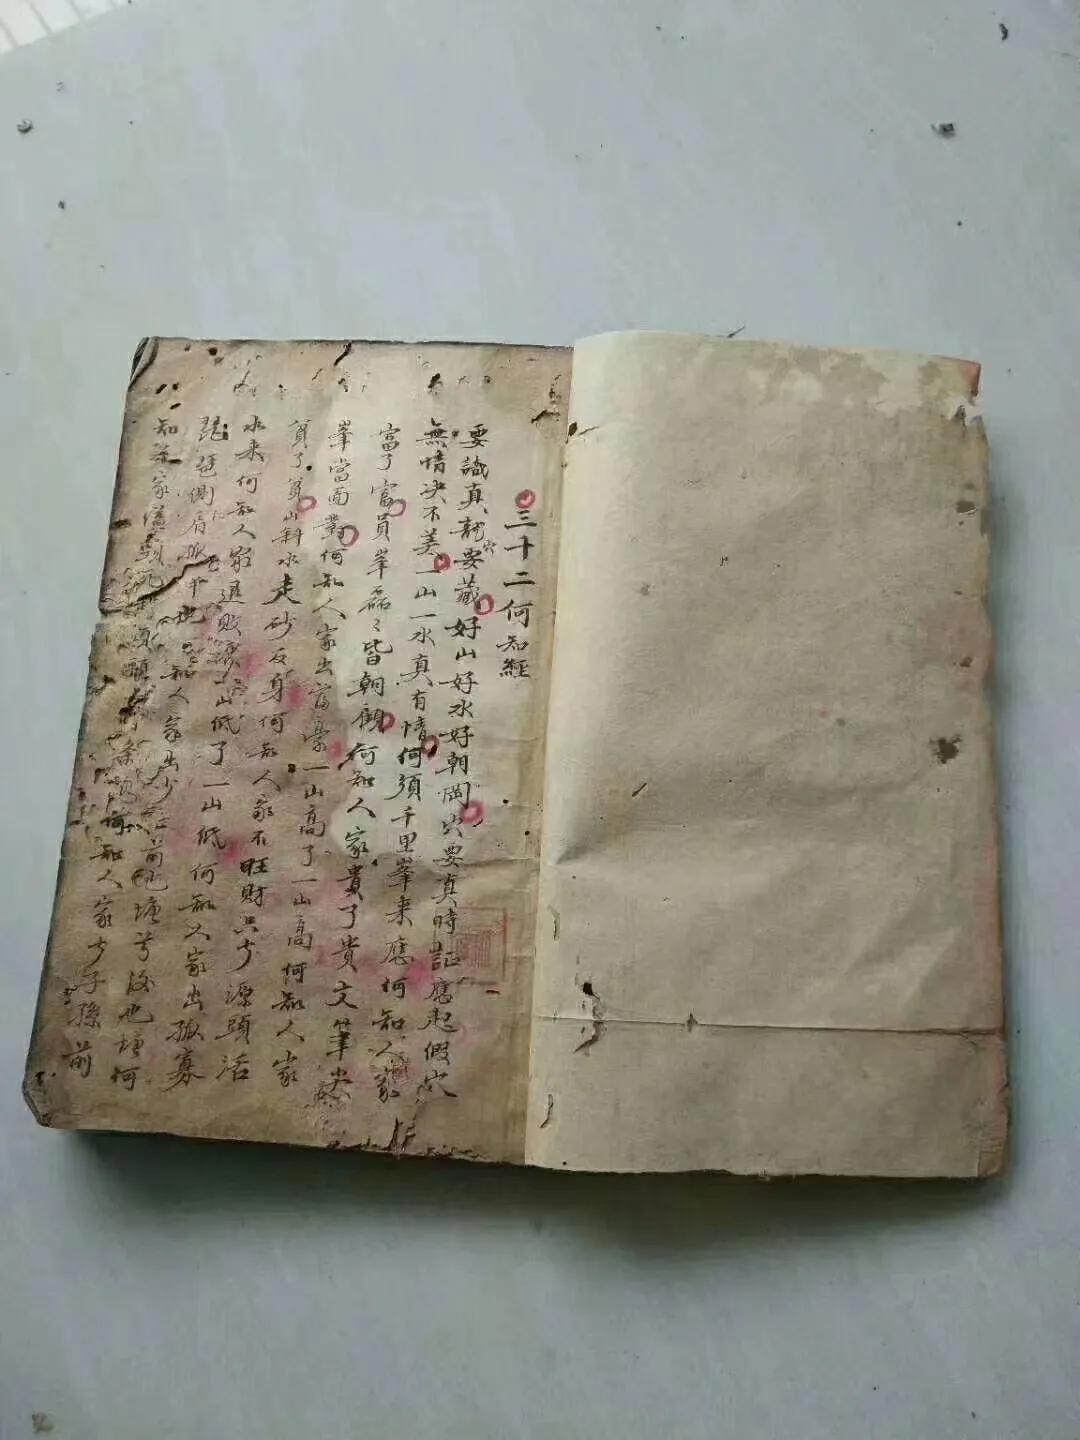 三十二何知經
要識真龍穴要藏好山好水好朝岡穴要真時証應起假穴
無情决不美一山一水真有情何須千里峯来應何知人家
富了富員峯磊〻皆朝顧何知人家貴了貴文筆尖
峯當面對何知人家出富豪一山高了一山高何知人家
貧了貧山斜水走砂反身何知人家不旺財只少源頭活
水来何知人家退敗一山低了一山低何知人家出孤寡
琵琶側肩孤平也何知人家出少亡前也塘兮後也塘何
知人家縊何知人家少子孫前